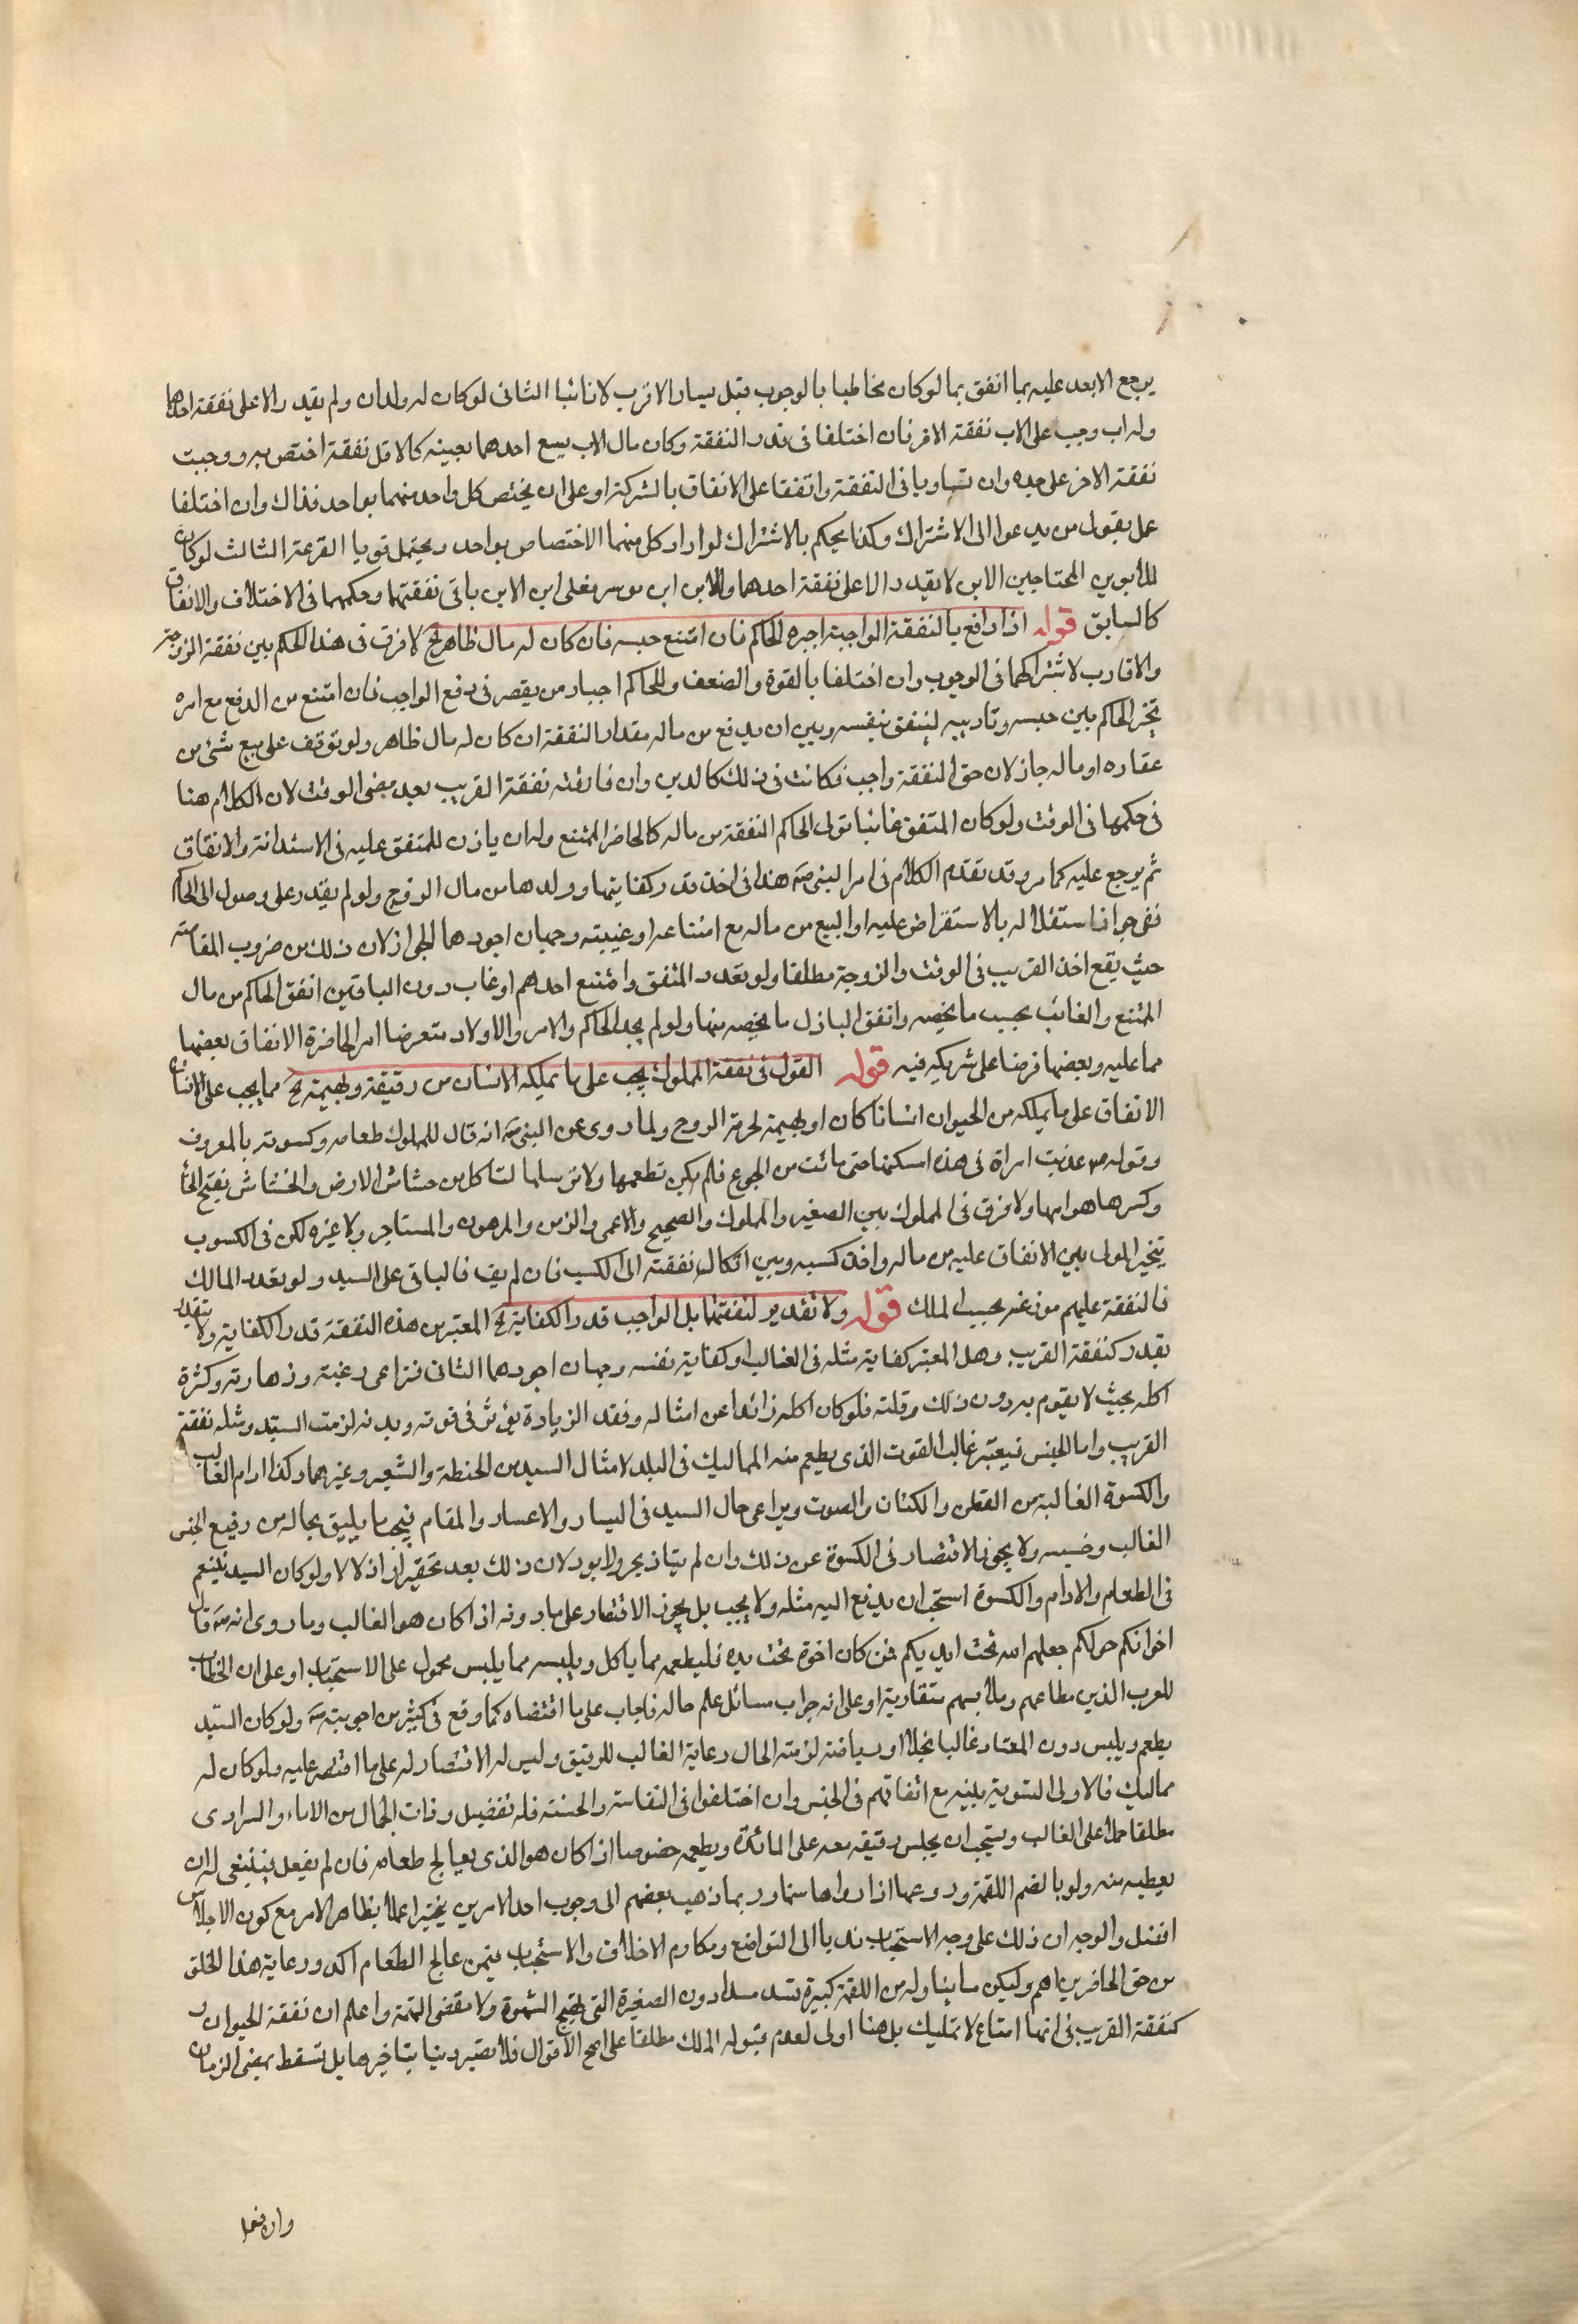 يرجع الابعد عليه بما انفق بما لو كان مخاطبا بالوجوب قبل يسار الاقرب لا نائبا الثانى لو كان له ولدان ولم يقدر الا على نفقة احدهما
وله اب وجب على الاب نفقة الاخر فان اختلفا فى قدر النفقة وكان مال الاب يسع احدهما بعينه كالاقل نفقة اختص به ووجبت
نفقة الاخر على جده وان تساويا فى النفقة واتفقا على الانفاق بالشركة او على ان يختص كل واحد منهما بواحد فذاك وان اختلفا
عمل بقول من يدعوا الى الاشتراك وكذا يحكم بالاشتراك لو اراد كل منهما الاختصاص بواحد ويحتمل قويا القرعة الثالث لو كان
للأبوين المحتاجين الابن لا يقدر الا على نفقة احدهما وللابن ابن موسر فعلى ابن الابن باقى نفقتهما وحكمهما فى الاختلاف والانفاق
كالسابق قوله اذا دافع بالنفقة الواجبة اجبره الحاكم فان امتنع حبسه فان كان له مال ظاهر الخ لا فرق فى هذا الحكم بين نفقة الزوجة
والاقارب لاشتراكهما فى الوجوب وان اختلفا بالقوة والضعف وللحاكم اجبار من يقصر فى دفع الواجب فان امتنع من الدفع مع امره
تخير الحاكم بين حبسه وتاديبه لينفق بنفسه وبين ان يدفع من ماله مقدار النفقة ان كان له مال ظاهر ولو توقف على بيع شئ من
عقاره او ماله جاز لان حق النفقة واجب فكانت فى ذلك كالدين وان فارقته نفقة القريب بعد مضى الوقت لان الكلام هنا
فى حكمها فى الوقت ولو كان المنفق غائبا تولى الحاكم النفقة من ماله كالحاضر الممتنع وله ان ياذن للمنفق عليه فى الاستدانة والانفاق
ثم يرجع عليه كما مر وقد تقدم الكلام فى امر النبى صه هندا فى اخذ قدر كفايتها وولدها من مال الزوج ولو لم يقدر على وصول الى الحاكم
ففى جواز استقلاله بالاستقراض عليه او البيع من ماله مع امتناعه او غيبته وجهان اجودهما الجواز لان ذلك من ضروب المقاصة
حيث يقع اخذ القريب فى الوقت والزوجة مطلقا ولو تعدد المنفق وامتنع احدهم او غاب دون الباقين انفق الحاكم من مال
الممتنع والغائب بحسب ما يخصه وانفق الباذل ما يخصه منها ولو لم يجد الحاكم والامر والاولاد متعرضا امر الحاضرة الانفاق بعضها
مما عليه وبعضها قرضا على شريكه فيه قوله القول فى نفقة المملوك يجب على ما يملكه الانسان من رقيقة وبهيمة الخ مما يجب على الانسان
الانفاق على ما يملكه من الحيوان انسانا كان او بهيمة لحرمة الروح ولما روى عن النبى صه انه قال للمملوك طعامه وكسوته بالمعروف
وقوله ص عذبت امراة فى هذه امسكتها حتى ماتت من الجوع فلم يكن تطعمها ولا ترسلها لتاكل من خشاش الارض والخشاش بفتح الخاء
وكسرها هوامها ولا فرق فى المملوك بين الصغير والمملوك والصحيح والاعمى والزمن والمرهون والمستاجر ولا غيره لكن فى الكسوب
تخير المولى بين الانفاق عليه من ماله واخذ كسبه وبين اتكال نفقته الى الكسب فان لم يف فالباقى على السيد ولو تعدد المالك
فالنفقة عليهم موزعة بحسب الملك قوله ولا تقدير لنفقتهما بل الواجب قدر الكفاية الخ المعتبر من هذه النفقة قدر الكفاية ولا يتقدر
بقدر كنفقة القريب وهل المعتبر كفاية مثله فى الغالب او كفاية نفسه وجهان اجودهما الثانى فتراعى رغبته وزهادته وكثرة
اكله بحيث لا يقوم به دون ذلك وقلته فلو كان اكله زائدا عن امثاله وفقد الزيادة يؤثر فى قوته وبدنه لزمت السيد ومثله نفقة
القريب واما الجنس فيعتبر غالب القوت الذى يطعم منه المماليك فى البلد لامثال السيد من الحنطة والشعير وغيرهما وكذا ادام الغالب
والكسوة الغالبة من القطن والكتان والصوف ويراعى حال السيد فى اليسار والاعسار والمقام فيجب ما يليق بحاله من رفيع الجنس
الغالب وخسيسه ولا يجوز الاقتصار فى الكسوة عن ذلك وان لم يتاذ بحر ولا برد لان ذلك بعد تحقير او اذلالا ولو كان السيد يتنعم
فى الطعام والادام والكسوة استحب ان يدفع اليه مثله ولا يجب بل يجوز الاقتصار على ما دونه اذا كان هو الغالب وما روى انه صه قال
اخوانكم خولكم جعلهم الله تحت ايديكم فمن كان اخوه تحت يده فليطعمه مما ياكل ويلبسه مما يلبس محمول على الاستحباب او على ان الخطاب
للعرب الذين مطاعمهم وملابسهم متقاربة او على انه جواب سائل علم حاله فاجاب على ما اقتضاه كما وقع فى كثير من اجوبته صه ولو كان السيد
يطعم ويلبس دون المعتاد غالبا بخلا او رياضة لزمته الحال رعاية الغالب للرقيق وليس له الاقتصار له على ما اقتصر عليه ولو كان له
مماليك فالاولى التسوية بينه مع اتفاقهم فى الجنس وان اختلفوا فى النفاسة والخسة فله تفضيل وذات الجمال من الاماء والسرارى
مطلقا حملا على الغالب ويستحب ان يجلس رقيقه معه على المائدة ويطعمه خصوصا اذا كان هو الذى يعالج طعامه فان لم يفعل فينبغى له ان
يعطيه منه ولو بالضم اللقمة ورد وعها اذا رواها سنا وربما ذهب بعضهم الى وجوب احد الامرين تخييرا عملا بظاهر الامر مع كون الاجلاس
افضل والوجه ان ذلك على وجه الاستحباب ندبا الى التواضع ومكارم الاخلاق والاستحباب فيمن عالج الطعام اكد ورعاية هذا الخلق
من حق الحاضرين اهم وليكن ما يناوله من اللقمة كبيرة تسد مسدا دون الصغيرة التى تهيج الشهوة ولا تقضى النهمة واعلم ان نفقة الحيوان
كنفقة القريب فى انها امتاع لا تمليك بل هنا اولى لعدم قبوله الملك مطلقا على اصح الاقوال فلا تصير دينا بتاخيرها بل تسقط بمضى الزمان
وان فعل